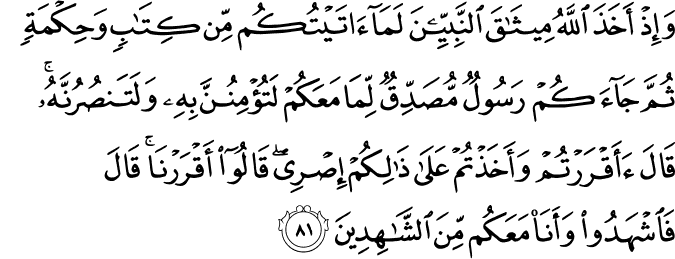 وَإِذْ أَخَذَ ٱللَّهُ مِيثَٰقَ ٱلنَّبِيِّۦنَ لَمَآ ءَاتَيْتُكُم مِّن كِتَٰبٍ وَحِكْمَةٍ
ثُمَّ جَآءَكُمْ رَسُولٌ مُّصَدِّقٌ لِّمَا مَعَكُمْ لَتُؤْمِنُنَّ بِهِۦ وَلَتَنصُرُنَّهُۥ ۚ
قَالَ ءَأَقْرَرْتُمْ وَأَخَذْتُمْ عَلَىٰ ذَٰلِكُمْ إِصْرِى ۖ قَالُوٓا۟ أَقْرَرْنَا ۚ قَالَ
فَٱشْهَدُوا۟ وَأَنَا۠ مَعَكُم مِّنَ ٱلشَّٰهِدِينَ ٨١